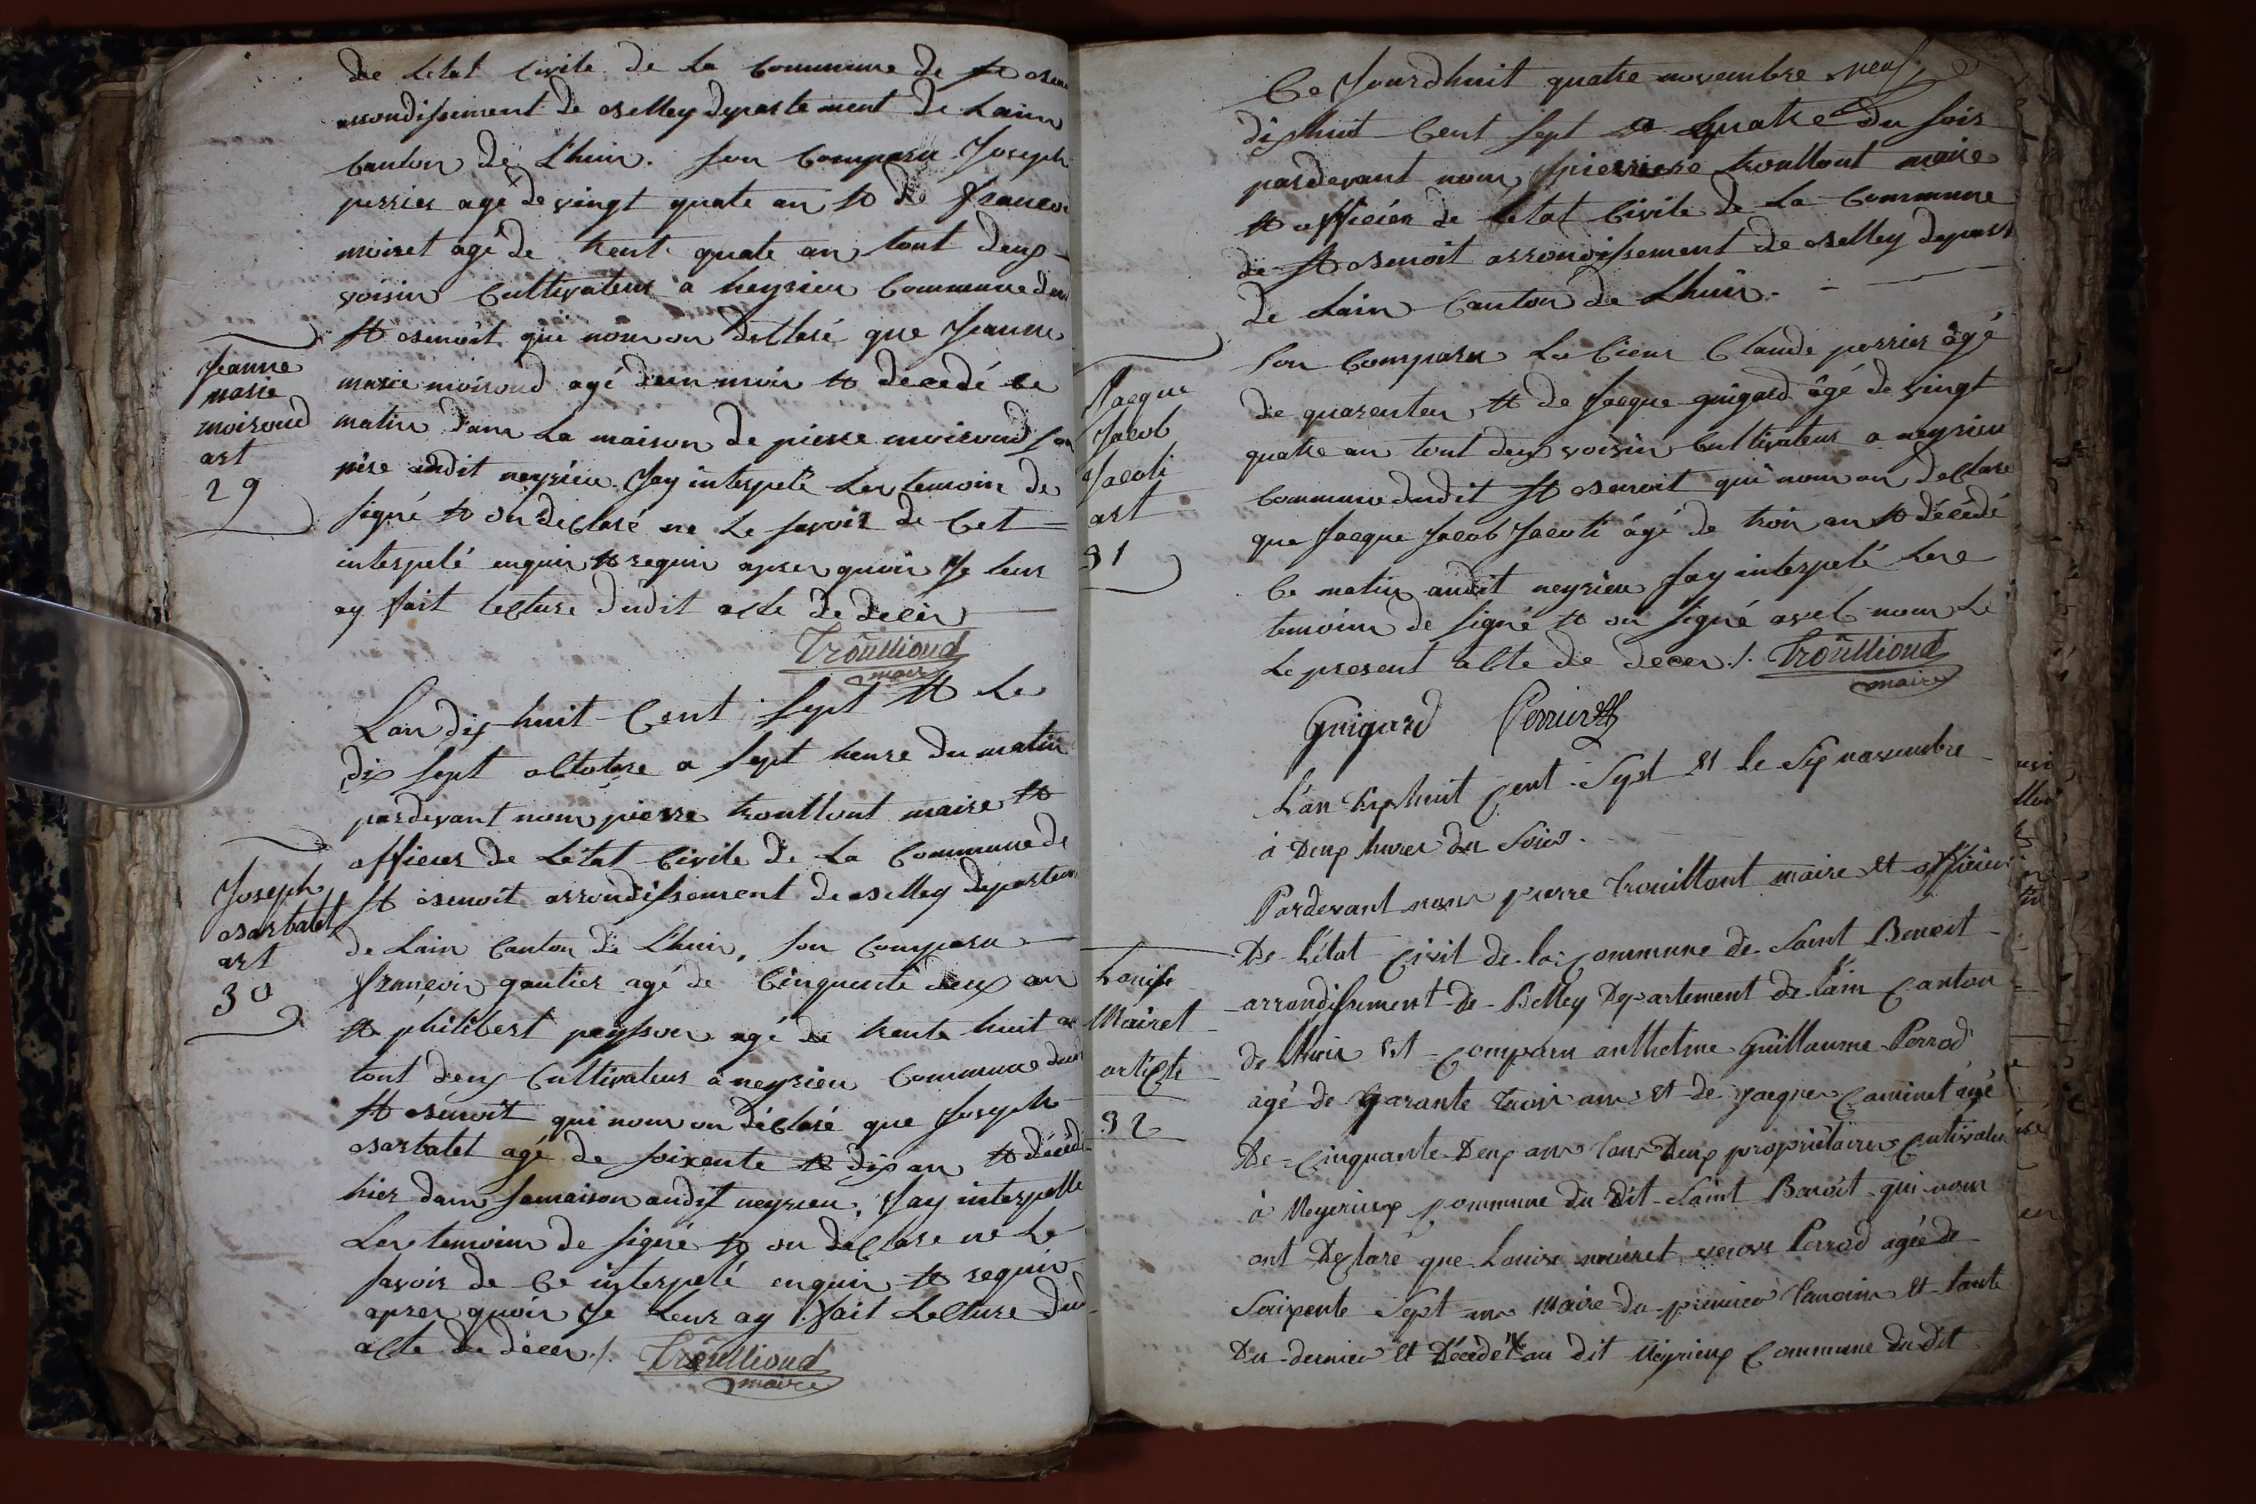 de Letat Civile de La Commune de st Benoit
arrondissement de Belley departement de Lain
Canton de Lhuis. son Comparu Joseph
perrier agé de vingt quate an et de françoi
moiret agé de trent quate an tout deux
voisin Cultivateur a neyrieu Commune dudit
st Benoit qui nous on declaré que Jeanne
marie moiroud agé dun moin et decedé ce
matin dans La maison de pierre moiroud son
père audit neyrieu Jay interpelé Les temoin de
signé et on declaré ne Le savoir de Cet
interpelé enquin et requin apres quoin Je leur
ay fait lecture dudit acte de decès
Trouilloud
maire
Jeanne
marie
moiroud
art
29
Lan dix huit Cent sept et Le
dix sept octobre a sept heure du matin
pardevant nous pierre troullout maire et
officier de Létat Civile de La Commune de
st Benoit arrondissement de Belley departem
de Lain Canton de Lhuis, son Comparu
françois gautier agé de Cinquente deux an
et philibert peysson agé de trente huit an
tout deux Cultivateur a neyrieu Commune dudit
st Benoit qui nous on déclaré que Joseph
Barbatet agé de soixente et dix an et décédé
hier dans sa maison audit neyrieu, Jay interpelle
Les temoin de signé et on declare ne Le
savoir de Ce interpelé enquin et requin
apres quoin Je Leur ay fait Lecture du
acte de déces ./.
Trouilloud
maire
Joseph
Barbatet
art
30
Ce Jourdhuit quatre novembre neuf
dixhuit Cent sept a quatre du soir
pardevant nous pierre troullout maire
et officier de Letat Civile de La Commune
de st Benoit arrondissement de Belley depart
de Lain Canton de Lhuis.
son Comparu Le Cieur Claude perrier âgé
de quarenten et de Jacque guigard âgé de vingt
quatre an tout deux voisin Cultivateur a neyrieu
Commune dudit st Benoit qui nous on declare
que Jacque Jacob Jacoti âgé de troi an et décédé
Ce matin audit neyrieu Jay interpelé Les
temoins de signé et on signé avec nous Le
Le present acte de deces ./. Trouilloud
maire
Guigard Perrier
Jacque
Jacob
Jacoti
art
31
L'an Dixhuit Cent Sept et le Six novembre
à Deux heures du Soir.
Pardevant nous pierre Trouillout maire et officier
De l'état Civil de la Commune de Saint Benoit
arrondissement de Belley Departement de l'ain Canton
de lhuis Est Comparu anthelme Guillaume Perrod
agé de Garante trois ans et de jacques Caminet agé
De Cinquante Deux ans tous Deux propriétaires Cultivateur
à Meyrieux Commune du dit Saint Benoit qui nous
ont Declaré que Louise moiret veuve Perrod agée de
Soixente Sept ans Maire du premier temoins et tante
Du dernier Et Décédéé au dit Meyrieux Commune du dit
Louise
Mairet
article
32